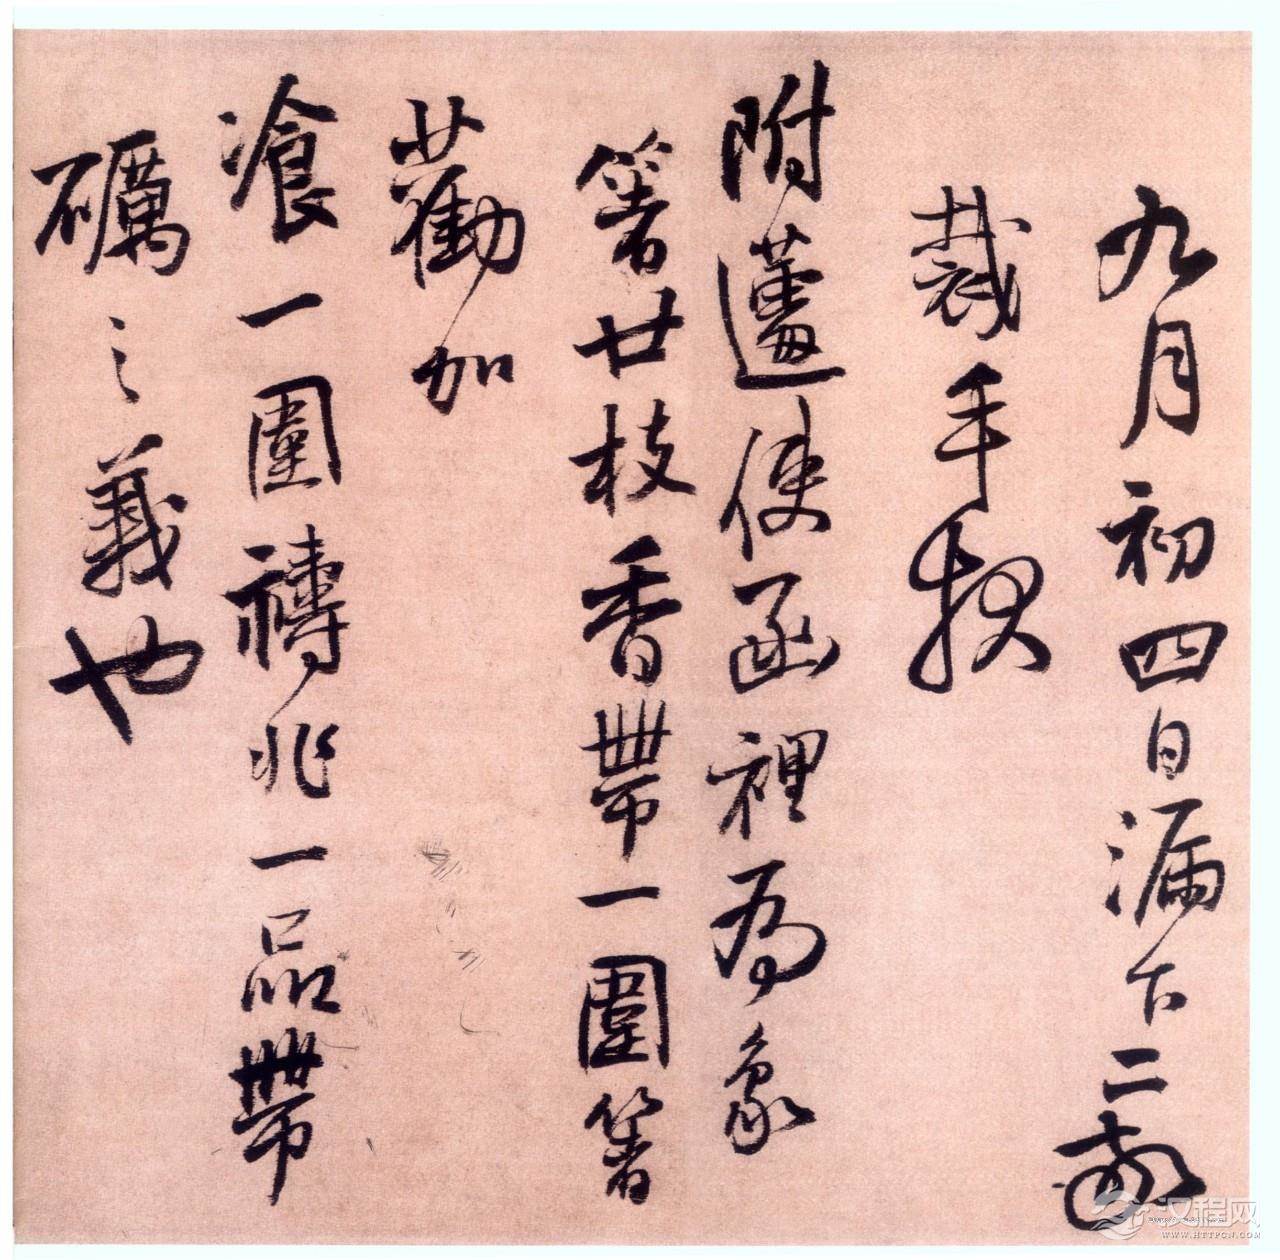 九月初四日漏下二鼓
裁手
附使函裡為象
箸廿枝香帶一圍箸
勸加
飡一圍禱兆一品帶
礪之義也
汉程网
WWW.HTTPCN.COM